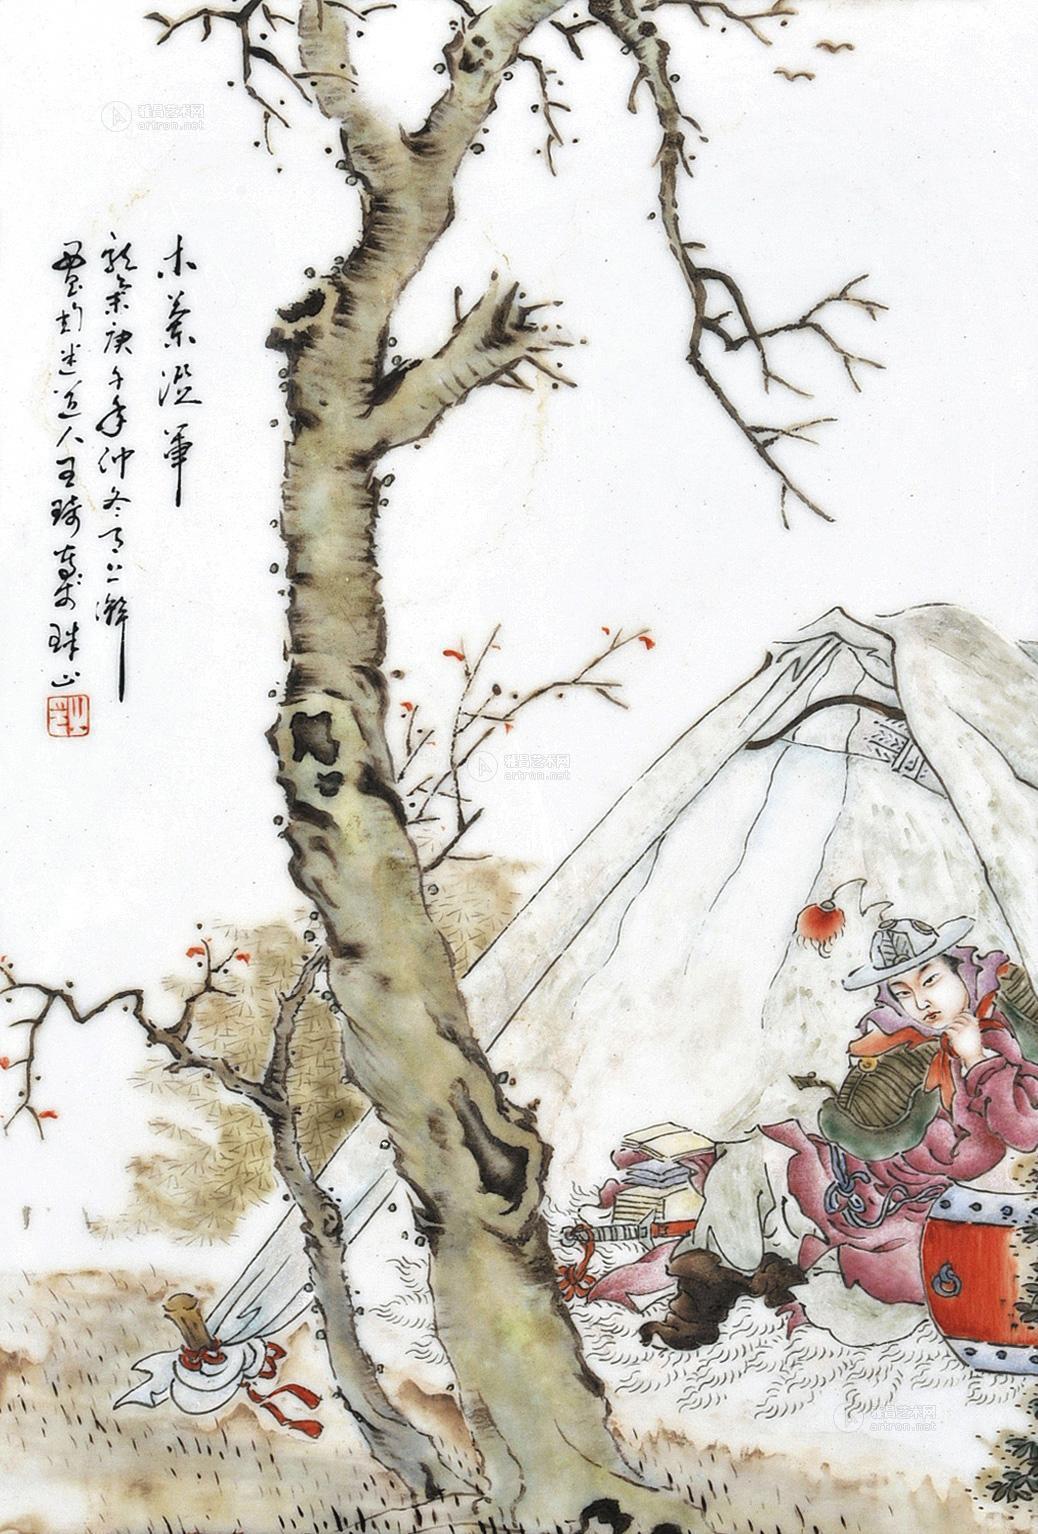 木蘭從軍
歲氣庚午年仲冬月上澣
西昌匋迷道人王琦寫於珠山
雅昌艺术网
artron.net
雅昌艺术网
artron.net
雅昌艺术网
artron.net